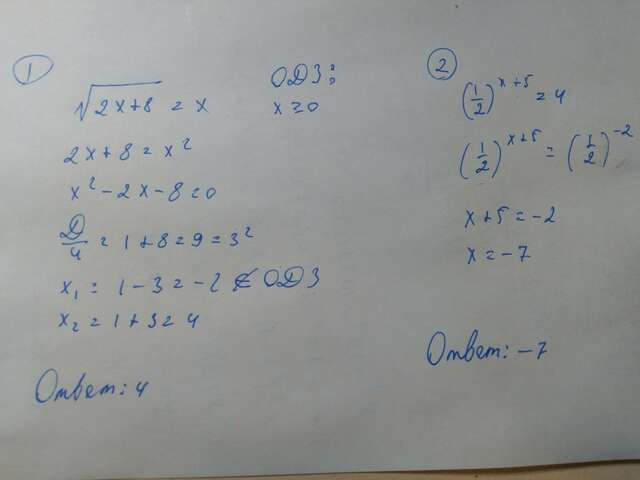 1
ОДЗ:
√2x+8 = x
x≥0
2x+8=x²
x²-2x-8=0
D/4 = 1+8=9=3²
x₁ = 1-3=-2 ∉ ОДЗ
x₂=1+3=4
Ответ: 4
2
(1/2)^x+5 = 4
(1/2)^x+5 = (1/2)^-2
x+5=-2
x=-7
Ответ: -7